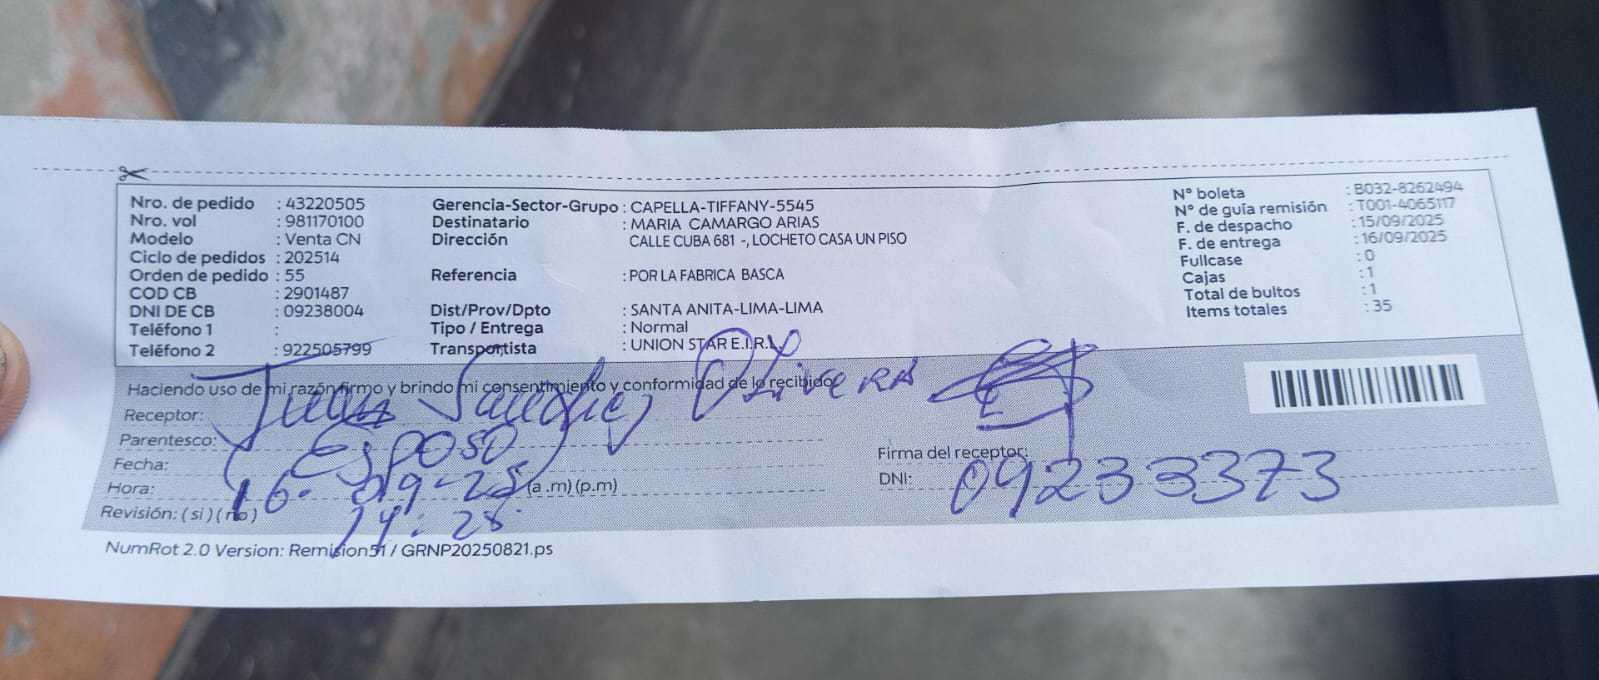 Nro. de pedido : 43220505
Nro. vol : 981170100
Modelo : Venta CN
Ciclo de pedidos : 202514
Orden de pedido : 55
COD CB : 2901487
DNI DE CB : 09238004
Teléfono 1 :
Teléfono 2 : 922505799
Gerencia-Sector-Grupo : CAPELLA-TIFFANY-5545
Destinatario : MARIA CAMARGO ARIAS
Dirección CALLE CUBA 681 -, LOCHETO CASA UN PISO
Referencia : POR LA FABRICA BASCA
Dist/Prov/Dpto : SANTA ANITA-LIMA-LIMA
Tipo / Entrega : Normal
Transportista : UNION STAR E.I.R.L
N° boleta : B032-8262494
N° de guía remisión : T001-4065117
F. de despacho : 15/09/2025
F. de entrega : 16/09/2025
Fullcase : 0
Cajas : 1
Total de bultos : 1
Items totales : 35
Haciendo uso de mi razón firmo y brindo mi consentimiento y conformidad de lo recibido
Receptor: Juan Sanchez Olivera
Parentesco: Esposo
Fecha: 16-09-25
Hora: 14:25 (a.m) (p.m)
Revisión: ( si ) ( no )
Firma del receptor:
DNI: 09233373
NumRot 2.0 Version: Remision51 / GRNP20250821.ps